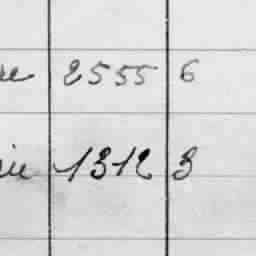 2555 6
1312 3